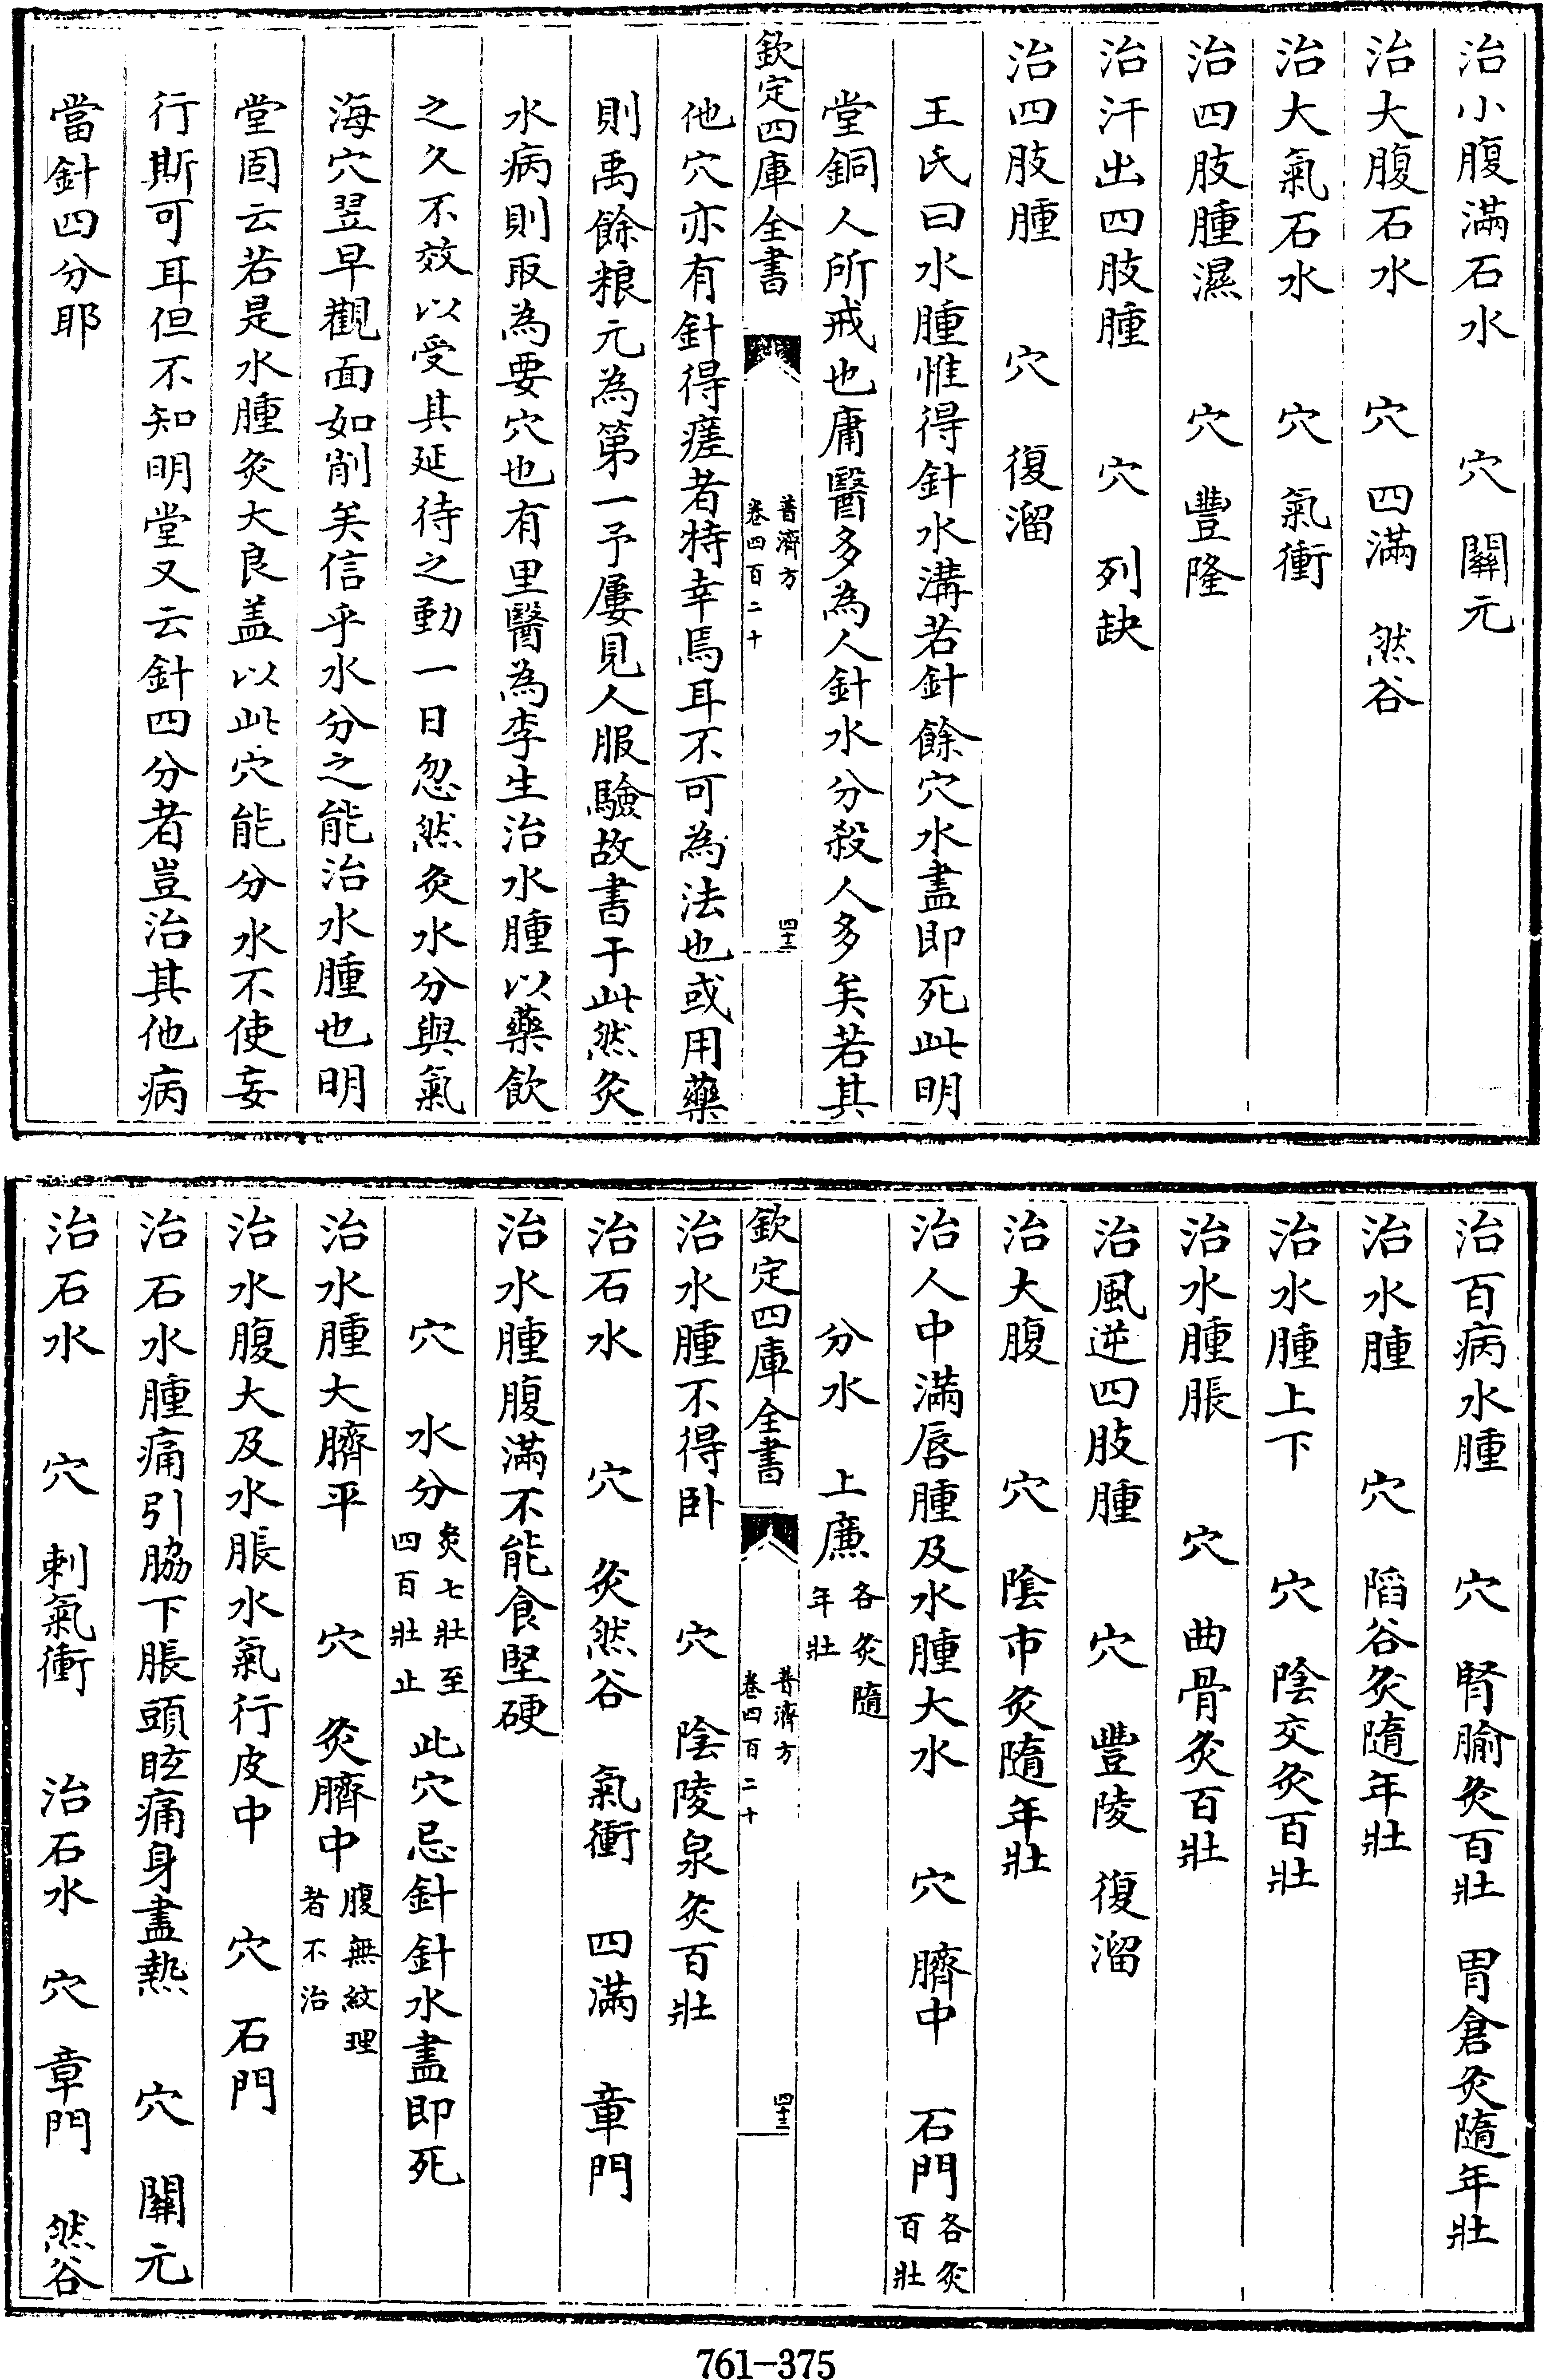 治小腹滿石水　穴　關元
治大腹石水　穴　四滿　然谷
治大氣石水　穴　氣衝
治四肢腫濕　穴　豐隆
治汗出四肢腫　穴　列缺
治四肢腫　穴　復溜
王氏曰水腫惟得針水溝若針餘穴水盡即死此明
堂銅人所戒也庸醫多為人針水分殺人多矣若其
欽定四庫全書
普濟方
卷四百二十
四十二
他穴亦有針得瘥者特幸焉耳不可為法也或用藥
則禹餘粮元為第一予屢見人服驗故書于此然灸
水病則取為要穴也有里醫為李生治水腫以藥飲
之久不效以受其延待之勤一日忽然灸水分與氣
海穴翌早觀面如削矣信乎水分之能治水腫也明
堂固云若是水腫灸大良盖以此穴能分水不使妄
行斯可耳但不知明堂又云針四分者豈治其他病
當針四分耶
治百病水腫　穴　腎腧灸百壯　胃倉灸隨年壯
治水腫　穴　陷谷灸隨年壯
治水腫上下　穴　陰交灸百壯
治水腫脹　穴　曲骨灸百壯
治風逆四肢腫　穴　豐陵　復溜
治大腹　穴　陰市灸隨年壯
治人中滿唇腫及水腫大水　穴　臍中　石門各灸百壯
分水　上廉各灸隨年壯
欽定四庫全書
普濟方
卷四百二十
四十三
治水腫不得卧　穴　陰陵泉灸百壯
治石水　穴　灸然谷　氣衝　四滿　章門
治水腫腹滿不能食堅硬
穴　水分灸七壯至四百壯止此穴忌針針水盡即死
治水腫大臍平　穴　灸臍中腹無紋理者不治
治水腹大及水脹水氣行皮中　穴　石門
治石水腫痛引脇下脹頭眩痛身盡熱　穴　關元
治石水　穴　刺氣衝　治石水　穴　章門　然谷
761-375